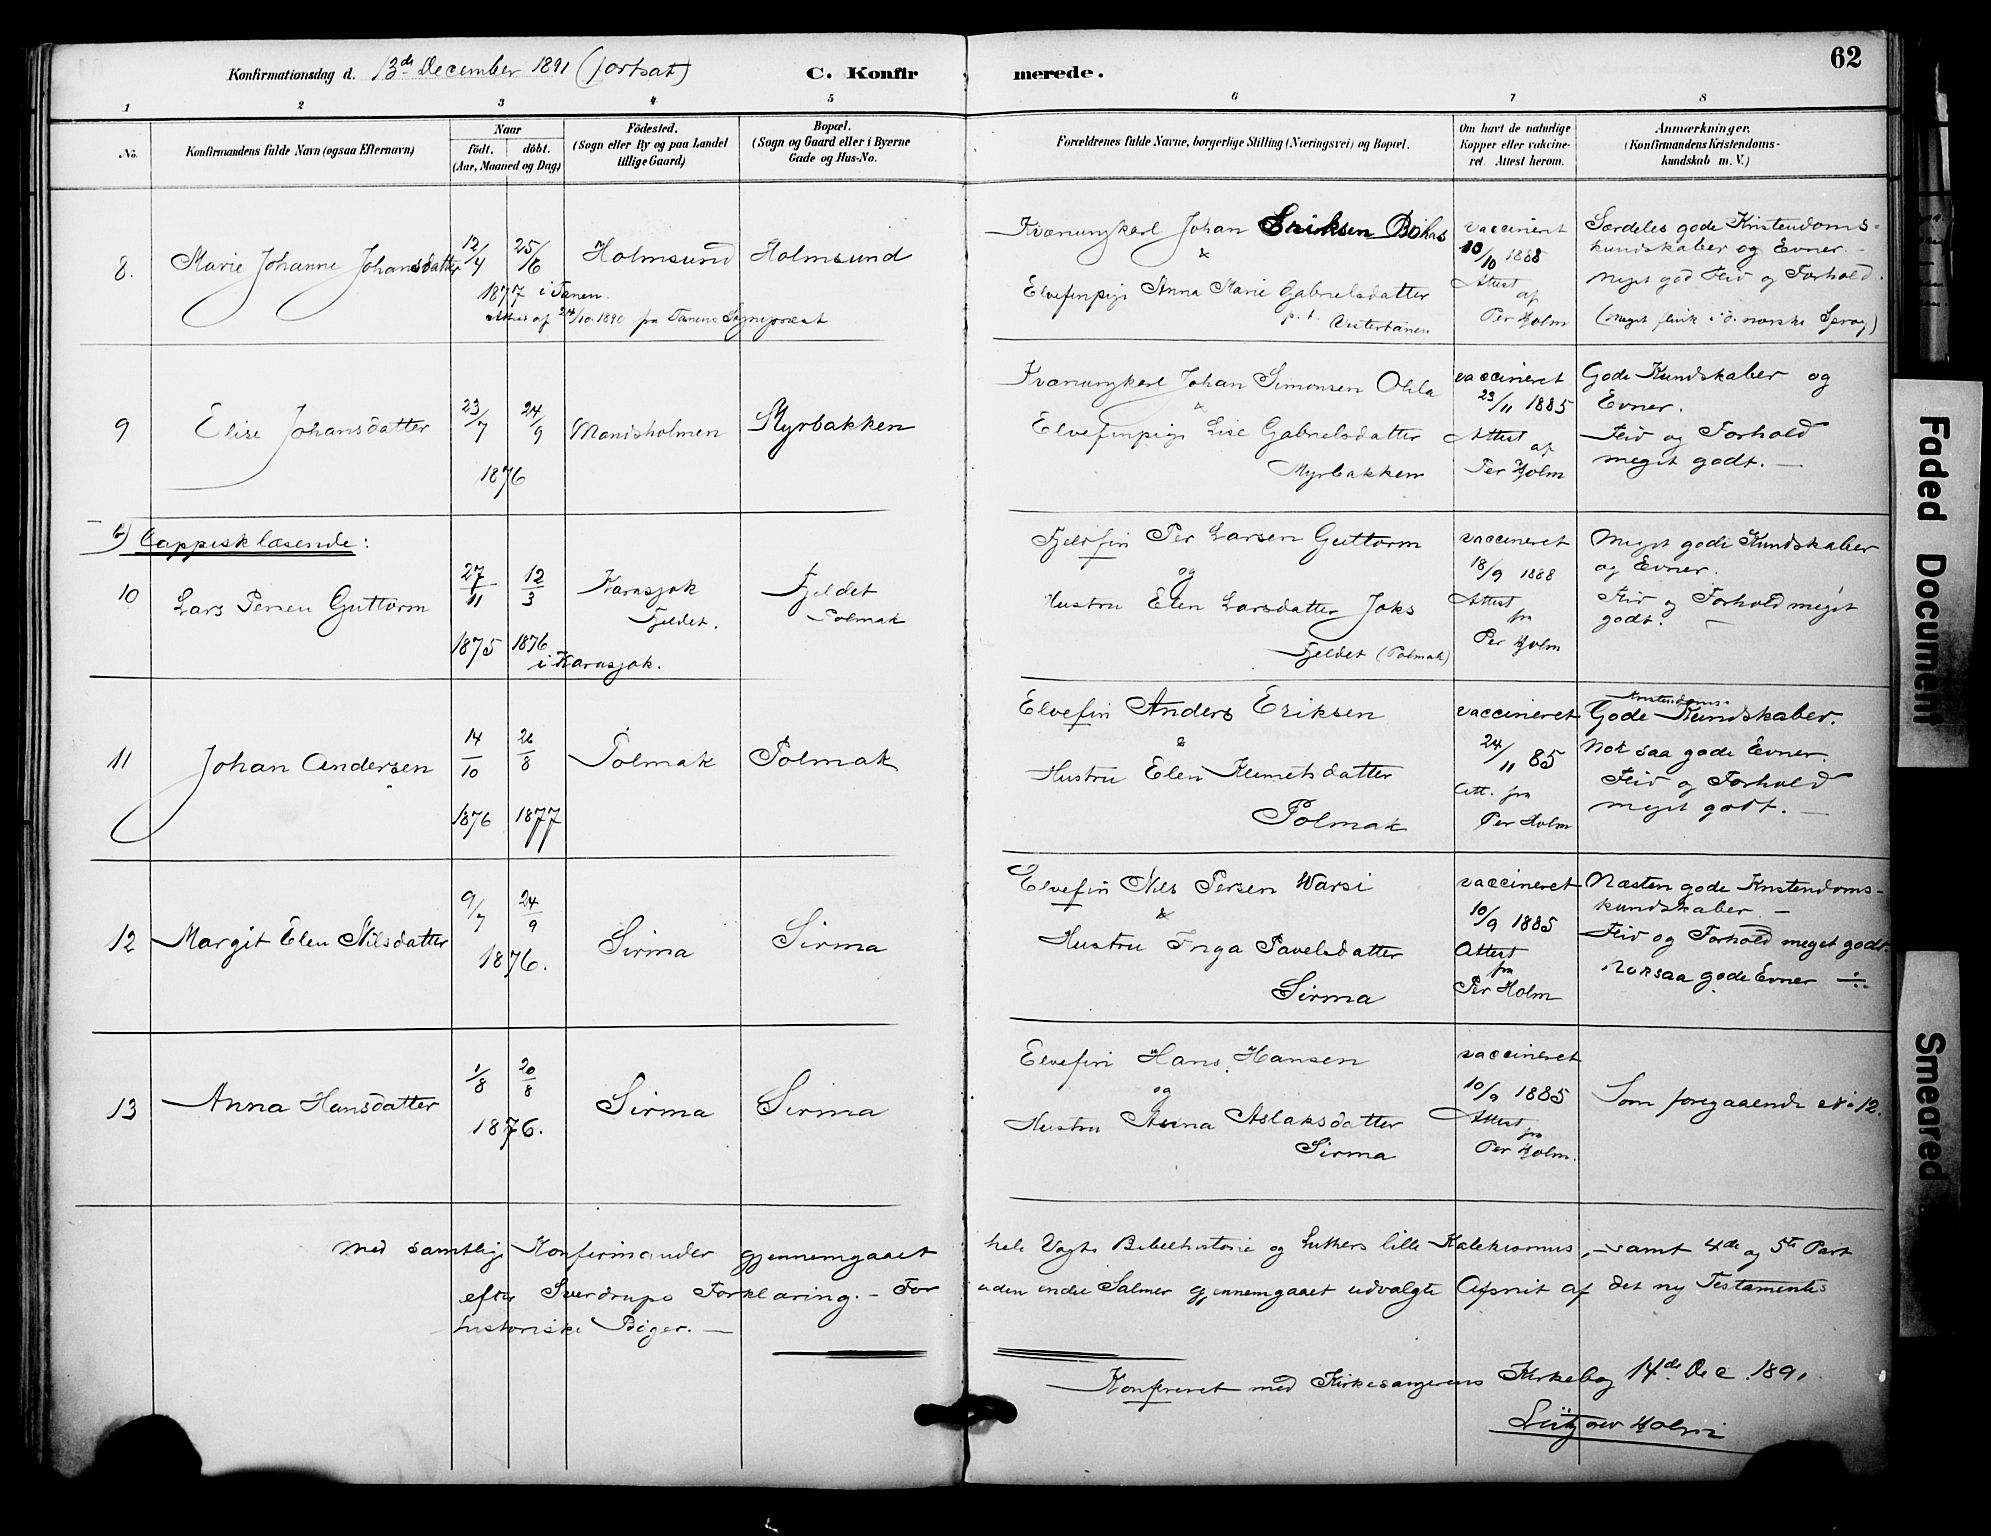 62
Konfirmationsdag d. 13de December 1891 (fortsat) C. Konfirmerede.
1 2 3 4 5 6 7 8
No. Konfirmandens fulde Navn (ogsaa Efternavn)
Naar født. døbt. (Aar, Maaned og Dag)
Fødested. (Sogn eller By og paa Landet tillige Gaard)
Bopæl. (Sogn og Gaard eller i Byerne Gade og Hus-No.
Forældrenes fulde Navne, borgerlige Stilling (Næringsvei) og Bopæl.
Om havt de naturlige Kopper eller vakcineret. Attest herom.
Anmærkninger. (Konfirmandens Kristendomskundskab m. V.)
8. Marie Johanne Johansdatter
12/4 25/6
1877 i Tanen.
Attest af 24/10 1890 fra Tanens Sogneprest
Holmsund Holmsund
Kvænungkarl Johan Eriksen Bohas
&
Elvefinpige Anna Marie Gabrielsdatter
p. t. Vestertanen
vaccineret
10/10 1888
Attest
af
Per Holm
Særdeles gode Kristendoms-
kundskaber og Evner.
Meget god Flid og Forhold.
(Meget flink i d. norske Sprog)
9 Elise Johansdatter
23/7 24/9
1876
Mandsholmen Myrbakken
Kvænungkarl Johan Simonsen Okla
&
Elvefinpige Lise Gabrielsdatter
Myrbakken
vaccineret
23/11 1885
Attest
af
Per Holm
Gode Kundskaber og
Evner.
Flid og Forhold
meget godt. —
b) Lappisk læsende:
10 Lars Persen Guttorm
27/11 12/3
1875 1876
i Karasjok.
Karasjok
Fjeldet.
Fjeldet
Polmak
Fjeldfin Per Larsen Guttorm
og
Hustru Elen Larsdatter Joks
Fjeldet (Polmak)
vaccineret
18/9 1888
Attest
fra
Per Holm
Meget gode Kundskaber
og Evner.
Flid og Forhold meget
godt. —
11 Johan Andersen
14/10 26/8
1876 1877
Polmak Polmak
Elvefin Anders Eriksen
&
Hustru Elen Klemetsdatter
Polmak
vaccineret
24/11 85
Att. fra
Per Holm
Kristendoms-
Gode Kundskaber.
Nok saa gode Evner.
Flid og Forhold
meget godt. —
12 Margit Elen Nilsdatter
9/7 24/9
1876.
Sirma Sirma
Elvefin Nils Persen Warsi
&
Hustru Inga Pavelsdatter
Sirma
vaccineret
10/9 1885
Attest
fra
Per Holm
Næsten gode Kristendoms-
kundskaber. —
Flid og Forhold meget godt.
Noksaa gode Evner
13 Anna Hansdatter
1/8 20/8
1876.
Sirma Sirma
Elvefin Hans Hansen
og
Hustru Anna Aslaksdatter
Sirma
vaccineret
10/9 1885
Attest
fra
Per Holm.
Som foregaaende No 12.
Med samtlige Konfirmander gjennemgaaet hele Vogts Bibelhistorie og Luthers lille Katekismus, — samt 4de og 5te Part
efter Sverdrups Forklaring. — For uden endel Salmer gjennemgaaet udvalgte Afsnit af det ny Testamentes
historiske Bøger. —
Konfereret med Kirkesangerens Kirkebog 14de Dec. 1891
Lützow Holm
Faded Document
Smeared